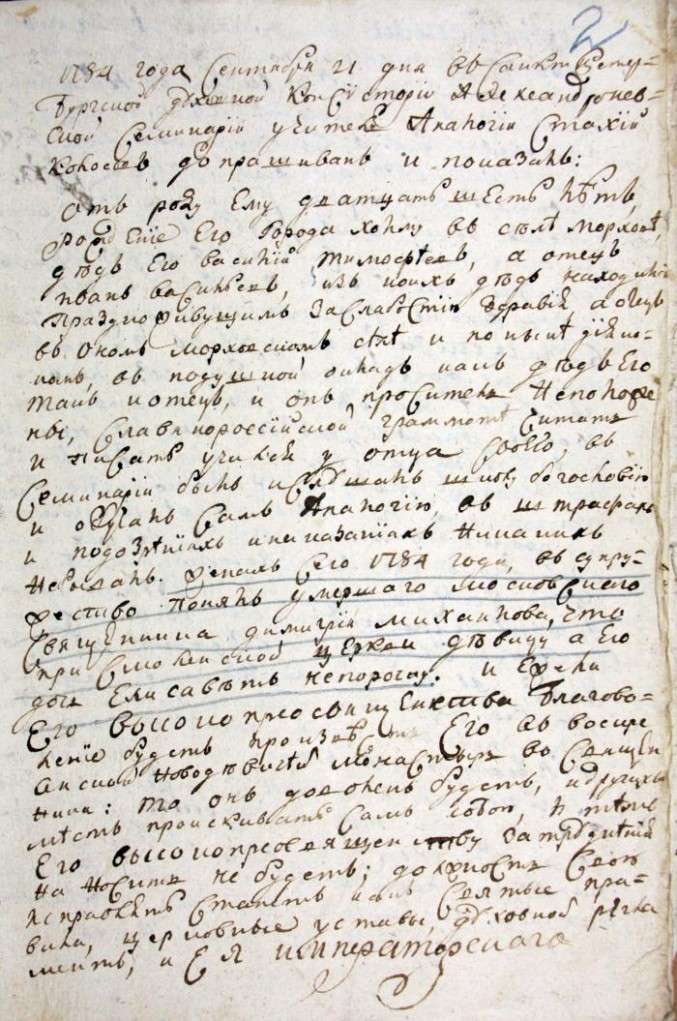 2
1784 года Сентября 21 дня въ Санктпетер-
бургской духовной Консисторіи Александроnев-
ской Семинаріи учитель Анатогіи Стахій
Колосовъ допрашиванъ и показалъ:
отъ роду Ему двадцать шесть лѣтъ,
рожденіе Его города Холму въ селѣ Морховѣ,
дѣдъ Его Василій Тимофѣевъ, а отецъ
Иванъ Васильевъ, изъ коихъ дѣдъ находился
праздноживущимъ за слабостію здравія, а отецъ
въ ономъ Морховскомъ селѣ и понынѣ діако-
номъ, въ подушной окладъ какъ дѣдъ Его
такъ и отецъ, и онъ проситель не положе
ны, Славянороссійской грамотѣ читать
и писать учился у отца своего, въ
Семинаріи былъ и слушалъ школу богословію
и обучалъ самъ Аналогію, въ штрафахъ
и подозрѣніяхъ и наказаніяхъ никакихъ
небывалъ. Женатъ сего 1784 года, въ супру-
жество понялъ умершаго Московскаго
Священника Димитрія Михайлова, что
при Смоленской церкви дѣвицу а Его
дочь Елисаветъ непорочну. и Ежели
Его высокопреосвященства благово-
леніе будетъ произвесть Его въ воскре
сенской Новодѣвичей монастырь во Священ
ники: то онъ доволенъ будетъ, и другихъ
мѣстъ проискивать самъ собою, и тѣмъ
Его высокопреосвященству затрудненій
наносить не будетъ; должность свою
исправлять станетъ какъ святые пра-
вила, церковные уставы, духовной регла
ментъ, и Ея императорскаго